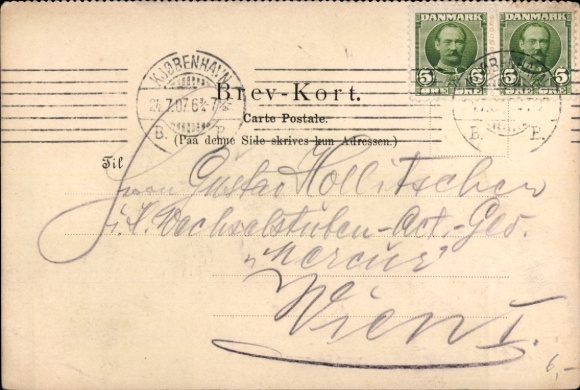 DANMARK DANMARK
5 5 5 5
ØRE ØRE ØRE ØRE
KJØBENHAVN
7.07
B. B.
KJØBENHAVN
B. B.
Brev-Kort.
Carte Postale.
(Paa denne Side skrives kun Adressen.)
Til
Herrn Gustav Hollitscher
Wechselstuben-Act.-Ges.
"Mercur"
Wien I.
6,-